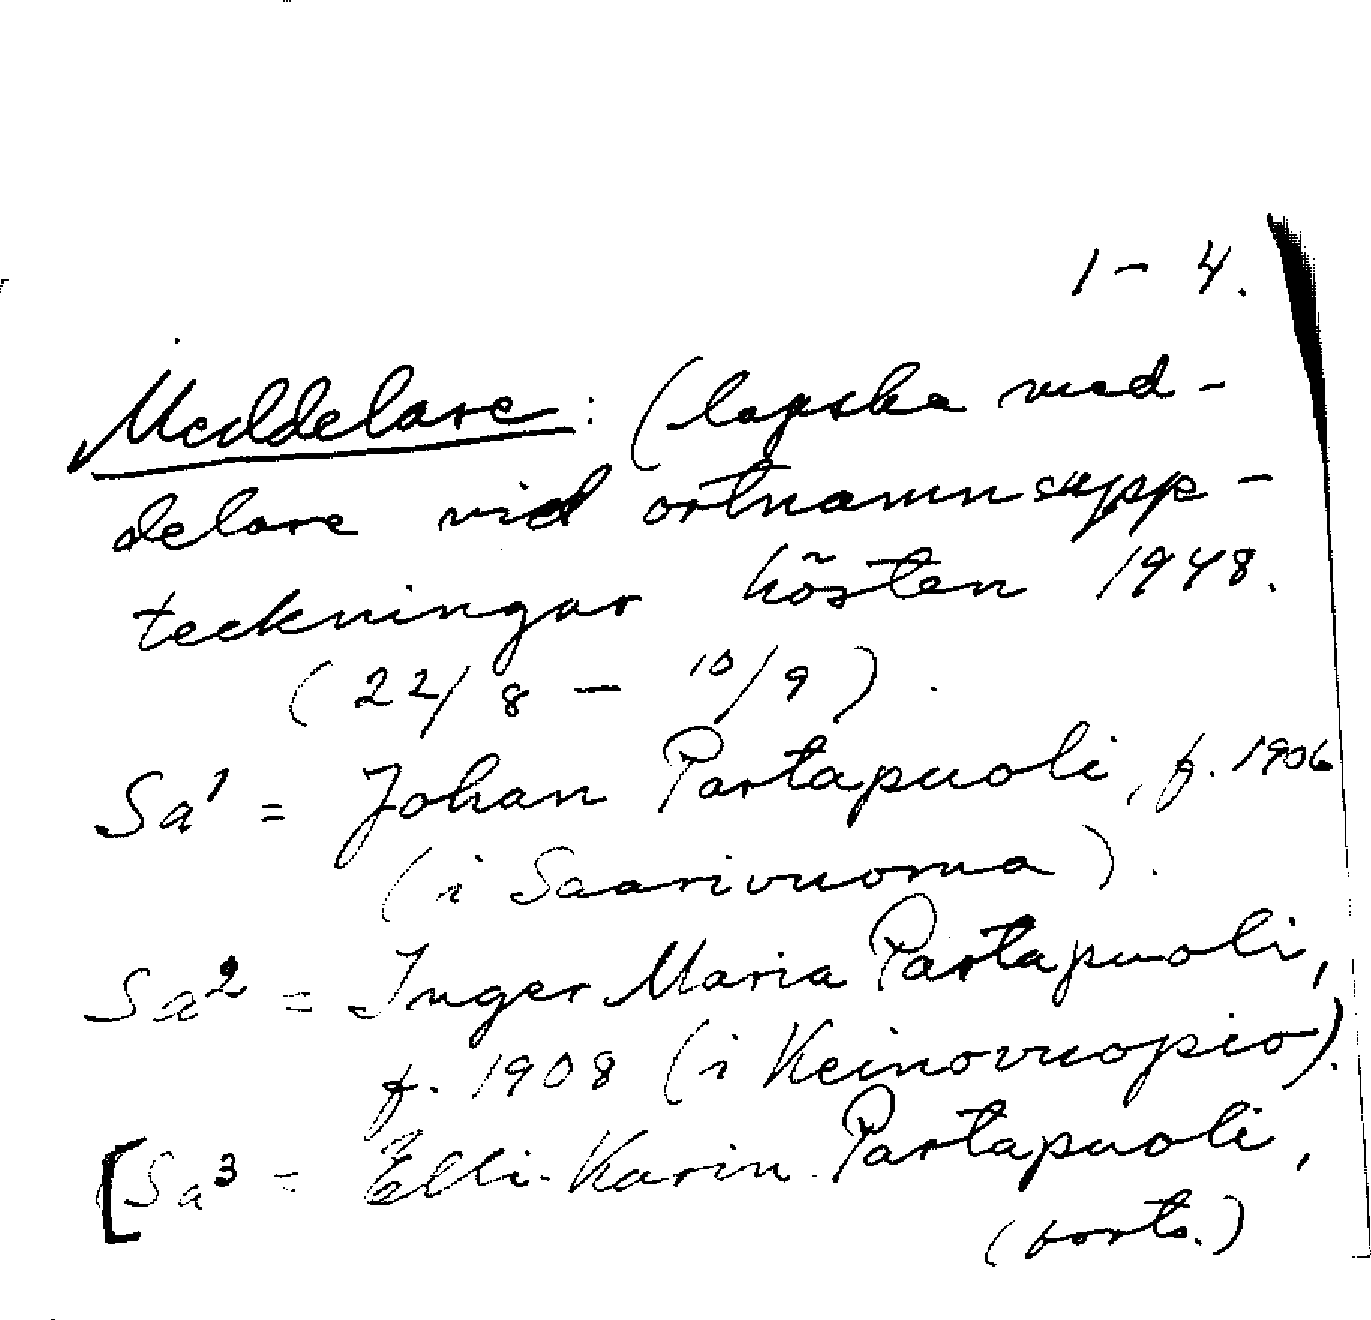 1 - 4.
Meddelare: (lapska med-
delare vid ortnamnsupp-
teckningar hösten 1948.
(22/8 - 10/9).
Sa¹ = Johan Partapuoli, f. 1906
(i Saarivuoma).
Sa² = Inger Maria Partapuoli,
f. 1908 (i Keinovuopio).
[Sa³ = Elli-Karin Partapuoli,
(forts.)